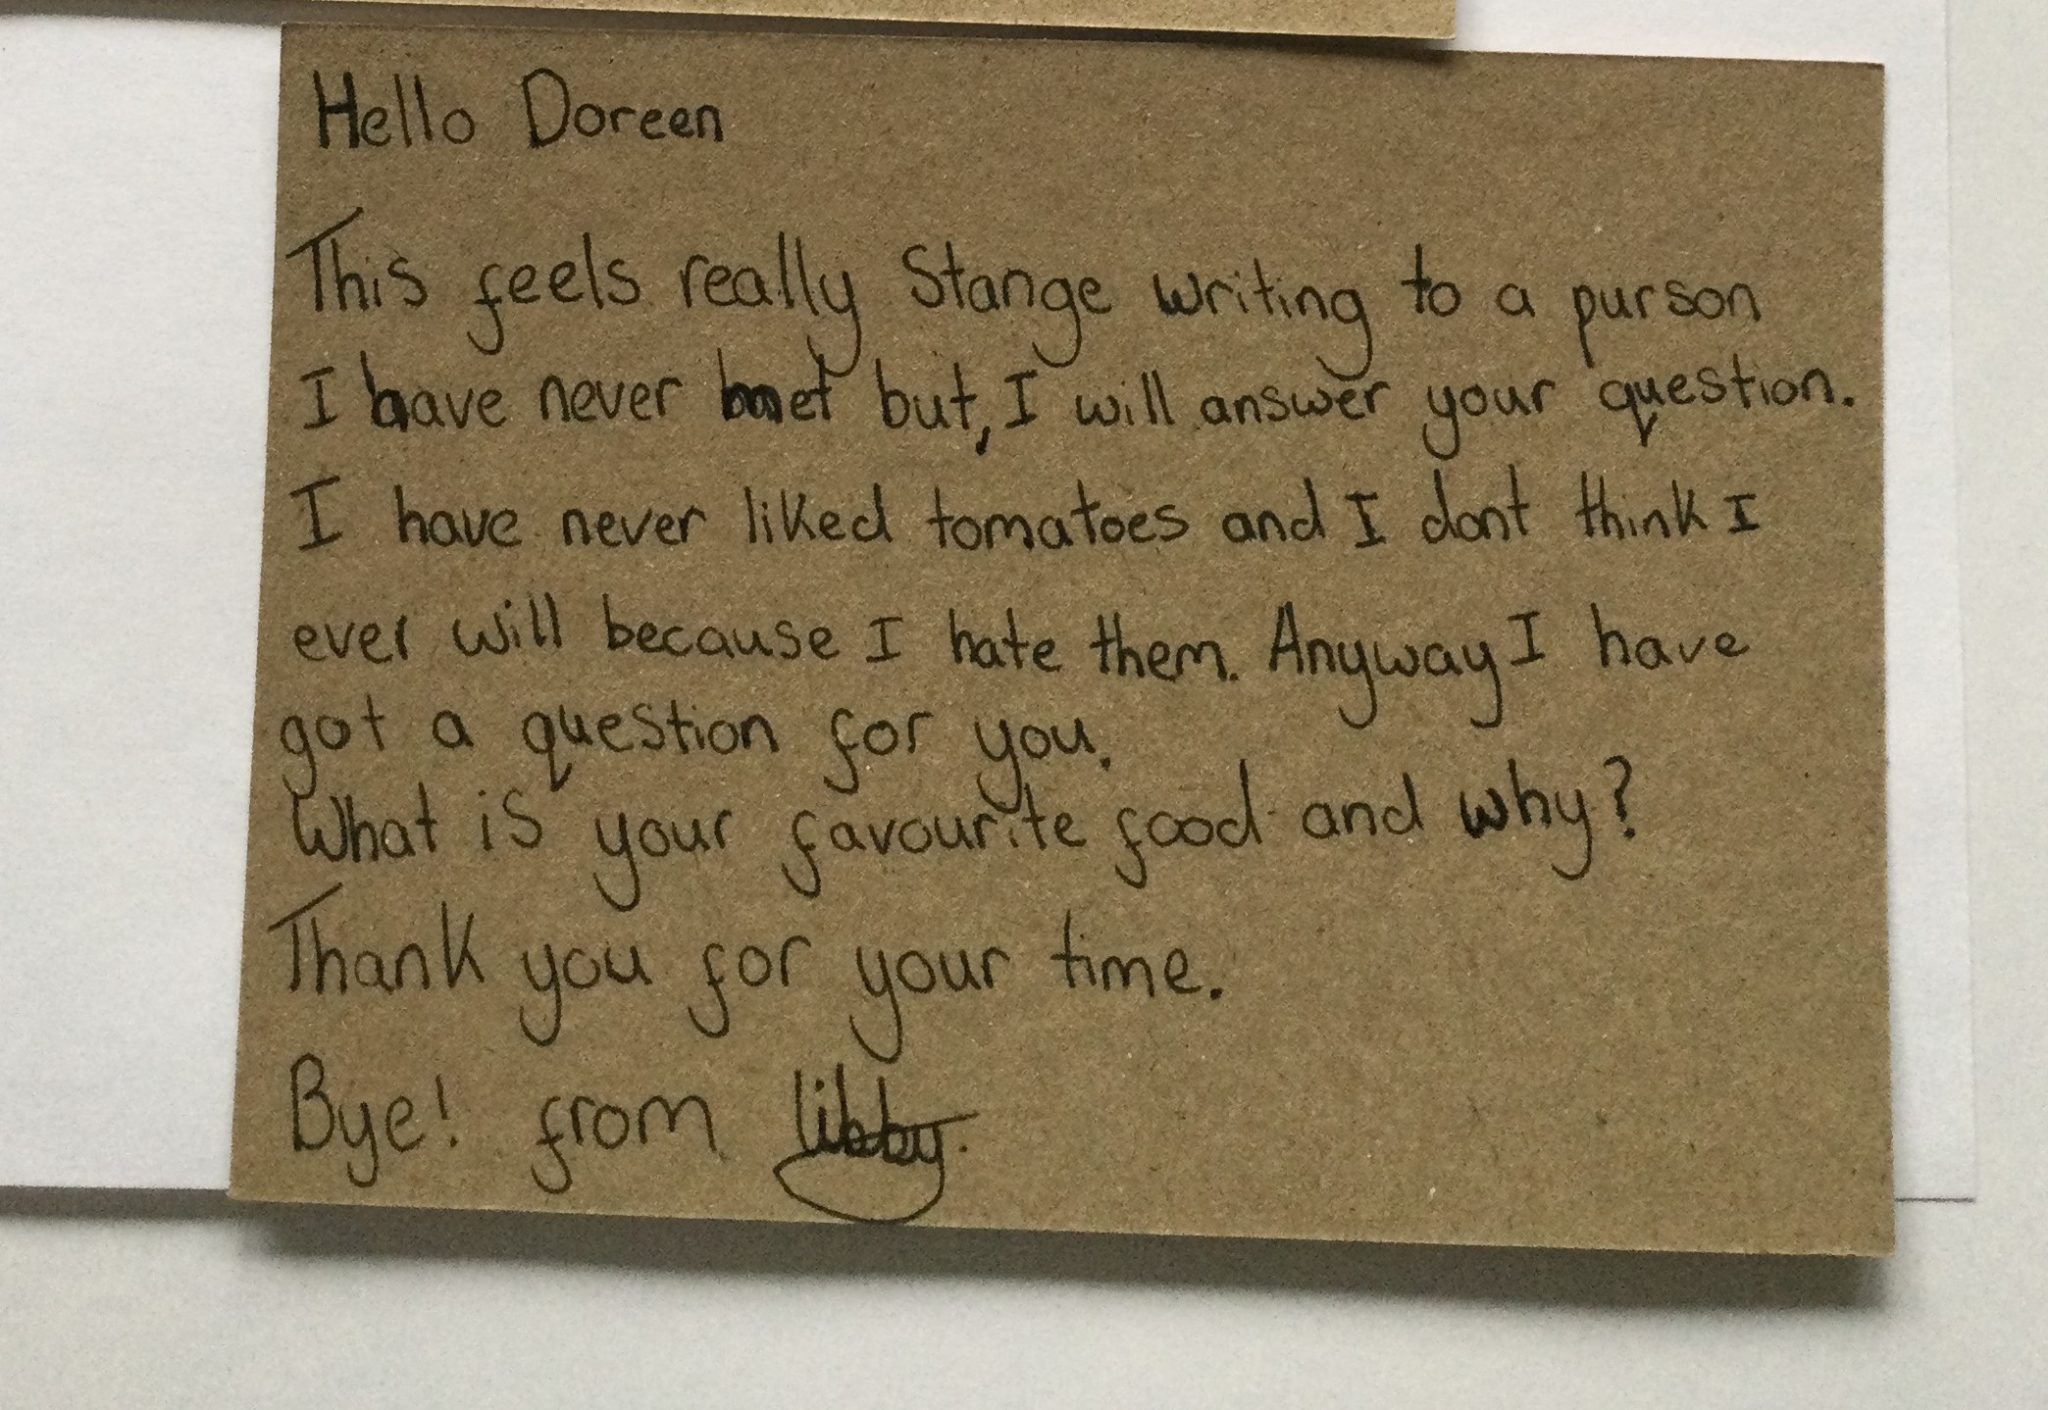 Hello Doreen
This feels really Stange writing to a purson
I have never met but, I will answer your question.
I have never liked tomatoes and I dont think I
ever will because I hate them. Anyway I have
got a question for you.
What is your favourite food and why?
Thank you for your time.
Bye! from libby.